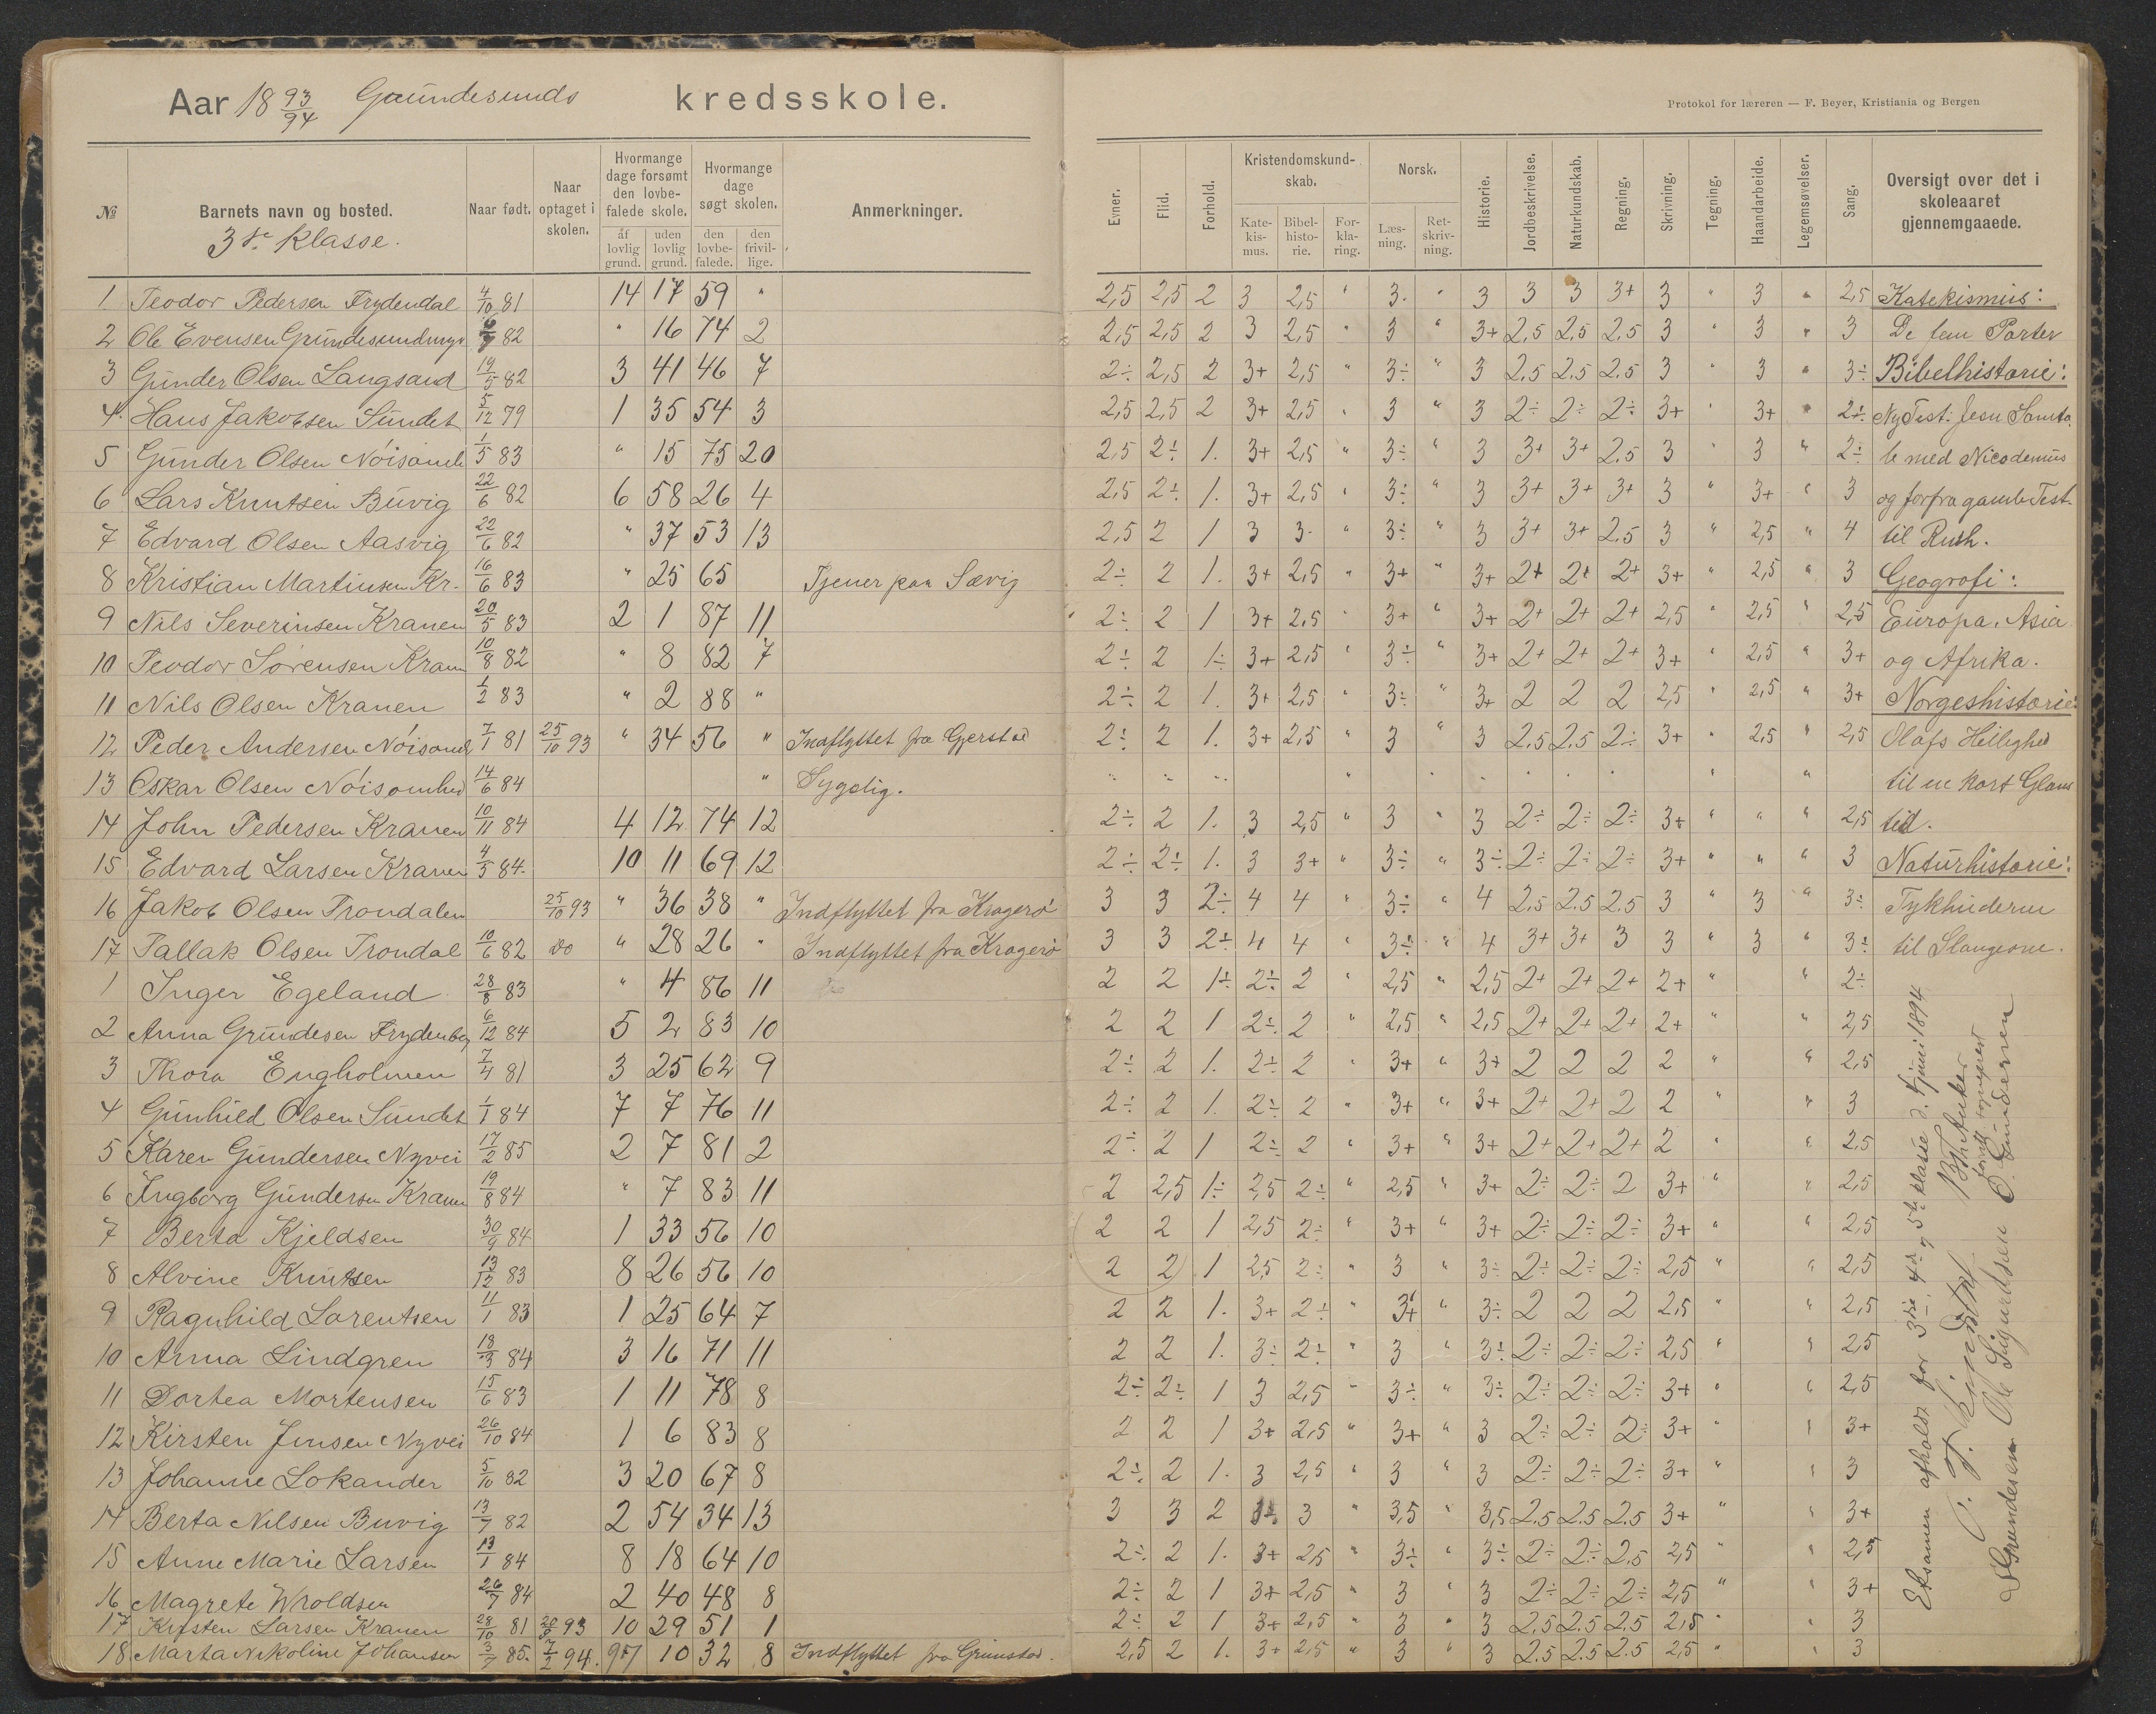 Aar 18 93/94 Grundesunds kredsskole.
Protokol for læreren — F. Beyer, Kristiania og Bergen
№ Barnets navn og bosted. Naar født. Naar optaget i skolen. Hvormange dage forsømt den lovbefalede skole. af lovlig grund. uden lovlig grund. Hvormange dage søgt skolen. den lovbefalede. den frivillige. Anmerkninger.
3die Klasse.
Evner. Flid. Forhold. Kristendomskundskab. Katekismus. Bibelhistorie. Forklaring. Norsk. Læsning. Retskrivning. Historie. Jordbeskrivelse. Naturkundskab. Regning. Skrivning. Tegning. Haandarbeide. Legemsøvelser. Sang. Oversigt over det i skoleaaret gjennemgaaede.
1 Teodor Pedersen Frydendal 4/10 81 14 17 59 " 2,5 2,5 2 3 2,5 " 3 " 3 3 3 3+ 3 " 3 " 2,5 Katekismus:
2 Ole Evensen 82 " 16 74 2 2,5 2,5 2 3 2,5 " 3 " 3+ 2,5 2,5 2,5 3 " 3 " 3 De fem Parter
3 Gunder Olsen Langsand 19/5 82 3 41 46 7 2÷ 2,5 2 3+ 2,5 " 3÷ " 3 2,5 2,5 2.5 3 " 3 " 3÷ Bibelhistorie:
4 Hans Jakobsen Sundet 5/12 79 1 35 54 3 2,5 2,5 2 3+ 2,5 " 3 " 3 2÷ 2÷ 2÷ 3+ " 3+ " 2÷ Ny Test: Jesu Samta
5 Gunder Olsen 1/5 83 " 15 75 20 2,5 2÷ 1. 3+ 2,5 " 3÷ " 3 3+ 3+ 2.5 3 " 3 " 2÷ le med Nicodemus
6 Lars Knutsen Buvig 22/6 82 6 58 26 4 2,5 2÷ 1. 3+ 2,5 " 3÷ " 3 3+ 3+ 3+ 3 " 3+ " 3 og forfra gamle Test.
7 Edvard Olsen Aasvig 22/6 82 " 37 53 13 2,5 2 1 3 3 " 3÷ " 3 3+ 3+ 2.5 3 " 2,5 " 4 til Ruth.
8 Kristian Martinsen Kr. 16/6 83 " 25 65 Tjener paa Sævig 2÷ 2 1. 3+ 2,5 " 3+ " 3+ 2+ 2+ 2+ 3+ " 2,5 " 3 Geografi:
9 Nils Severinsen Kranen 20/5 83 2 1 87 11 2÷ 2 1 3+ 2,5 " 3+ " 3+ 2+ 2+ 2+ 2,5 " 2,5 " 2,5 Europa, Asia
10 Teodor Sørensen Kranen 10/8 82 " 8 82 7 2÷ 2 1÷ 3+ 2,5 " 3÷ " 3+ 2+ 2+ 2+ 3+ " 2,5 " 3+ og Afrika.
11 Nils Olsen Kranen 1/2 83 " 2 88 " 2÷ 2 1. 3+ 2,5 " 3÷ " 3+ 2 2 2 2,5 " 2,5 " 3+ Norgeshistorie:
12 Peder Andersen 7/1 81 25/10 93 " 34 56 " Indflyttet fra Gjerstad 2÷ 2 1. 3+ 2,5 " 3 " 3 2.5 2.5 2÷ 3+ " 2,5 " 2,5 Olafs Hellighed
13 Oskar Olsen Nøisomhed 14/6 84 " Sygelig. til en kort Glans
14 John Pedersen Kranen 10/11 84 4 12 74 12 2÷ 2 1. 3 2,5 " 3 " 3 2÷ 2÷ 2÷ 3+ " " " 2,5 tid.
15 Edvard Larsen Kranen 84 10 11 69 12 2÷ 2÷ 1. 3 3+ " 3÷ " 3÷ 2÷ 2÷ 2÷ 3+ " " " 3 Naturhistorie:
16 Jakob Olsen Trondalen 25/10 93 " 36 38 " Indflyttet fra Kragerø 3 3 2÷ 4 4 " 3÷ " 4 2.5 2.5 2.5 3 " 3 " 3÷ Tykhuderne
17 Tallak Olsen Trondal 10/6 82 do " 28 26 " Indflyttet fra Kragerø 3 3 2÷ 4 4 " 3÷ " 4 3+ 3+ 3 3 " 3 " 3÷ til Slangerne.
1 Inger Egeland 28/8 83 " 4 86 11 2 2 1÷ 2÷ 2 " 2,5 " 2,5 2+ 2+ 2+ 2+ " " 2÷
2 Anna Grundesen Frydenberg 6/12 84 5 2 83 10 2 2 1 2÷ 2 " 2,5 " 2,5 2+ 2+ 2+ 2+ " " 2,5
3 Thora Engholmen 7/4 81 3 25 62 9 2÷ 2 1. 2÷ 2 " 3+ " 3+ 2 2 2 2 " " 2,5
4 Gunhild Olsen Sundet 1/1 84 7 7 76 11 2÷ 2 1. 2÷ 2 " 3+ " 3+ 2+ 2+ 2 2 " " 3
5 Karen Gundersen Nyvei 17/2 85 2 7 81 2 2÷ 2 1 2÷ 2 " 3+ " 3+ 2+ 2+ 2+ 2 " " 2,5
6 Ingborg Gundersen Kranen 19/8 84 " 7 83 11 2 2,5 1÷ 2,5 2÷ " 2,5 " 3+ 2÷ 2÷ 2 3+ " " 2,5
7 Berta Kjeldsen 30/9 84 1 33 56 10 2 2 1 2,5 2÷ " 3+ " 3+ 2÷ 2÷ 2÷ 3+ " " 2,5
8 Alvine Knutsen 13/12 83 8 26 56 10 2 2 1 2,5 2÷ " 3 " 3÷ 2÷ 2÷ 2÷ 2,5 " " 2,5
9 Ragnhild Lorentsen 11/1 83 1 25 64 7 2 2 1. 3+ 2÷ " 3+ " 3÷ 2 2 2 2,5 " " 2,5
10 Anna Lindgren 18/3 84 3 16 71 11 2 2 1. 3÷ 2÷ " 3 " 3÷ 2÷ 2÷ 2÷ 2,5 " " 2,5
11 Dortea Mortensen 15/6 83 1 11 78 8 2÷ 2÷ 1 3 2,5 " 3÷ " 3÷ 2÷ 2÷ 2÷ 3+ " " 2,5
12 Kirsten Jensen Nyvei 26/10 84 1 6 83 8 2 2 1 3+ 2,5 " 3+ " 3 2÷ 2÷ 2÷ 3+ " " 3+
13 Johanne Lokander 5/10 82 3 20 67 8 2÷ 2 1. 3 2,5 " 3 " 3 2÷ 2÷ 2÷ 3+ " " 3
14 Berta Nilsen Buvig 13/7 82 2 54 34 13 3 3 2 3 " 3,5 " 3,5 2.5 2.5 2.5 3+ " " 3+
15 Anne Marie Larsen 13/1 84 8 18 64 10 2÷ 2 1. 3+ 2,5 " 3÷ " 3÷ 2÷ 2÷ 2.5 2,5 " " 2,5
16 Magrete Wroldsen 26/7 84 2 40 48 8 2÷ 2 1 3+ 2,5 " 3 " 3 2÷ 2÷ 2÷ 2,5 " " 3+
17 Kirsten Larsen Kranen 28/10 81 93 10 29 51 1 2÷ 2 1 3+ 2,5 " 3 " 3 2.5 2.5 2.5 2,5 " " 3
18 Marta Nikoline Johansen 3/7 85. 7/2 94. 10 32 8 Indflyttet fra Grimstad. 2,5 2 1. 3+ 2,5 " 3 " 3 2.5 2.5 2.5 2,5 " " 3
Eksamen afholdt for 3die, 4de og 5te klasse d. juni 1894
Grundesen Ole Sigurdsen O. Gundersen